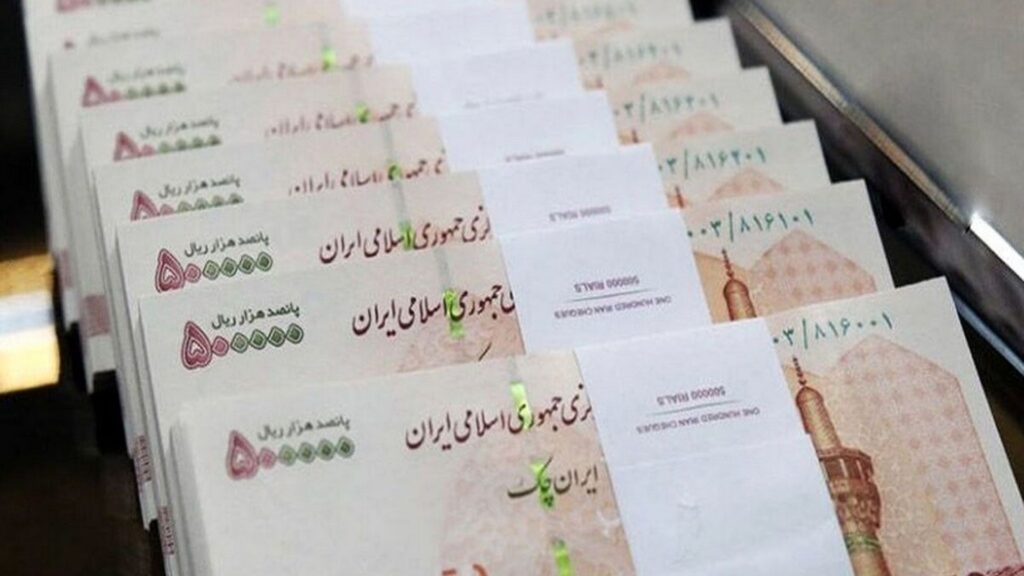 ۸۱۶۴۰۱
پانصد هزار ریال
۰۳/۸۱۶۳۰۱
پانصد هزار ریال
۰۳/۸۱۶۲۰۱
پانصد هزار ریال
۵۰۰۰۰۰
جمهوری اسلامی ایران
500000 RIALS
۰۰۳/۸۱۶۱۰۱
پانصد هزار ریال
۵۰۰۰۰۰
جمهوری اسلامی ایران
ONE HUNDRED IRAN CHEQUES
500000 RIALS
۰۳/۸۱۶۰۰۱
پانصد هزار ریال
۵۰۰۰۰۰
جمهوری اسلامی ایران
ایران چک
ONE HUNDRED IRAN CHEQUES
500000 RIALS